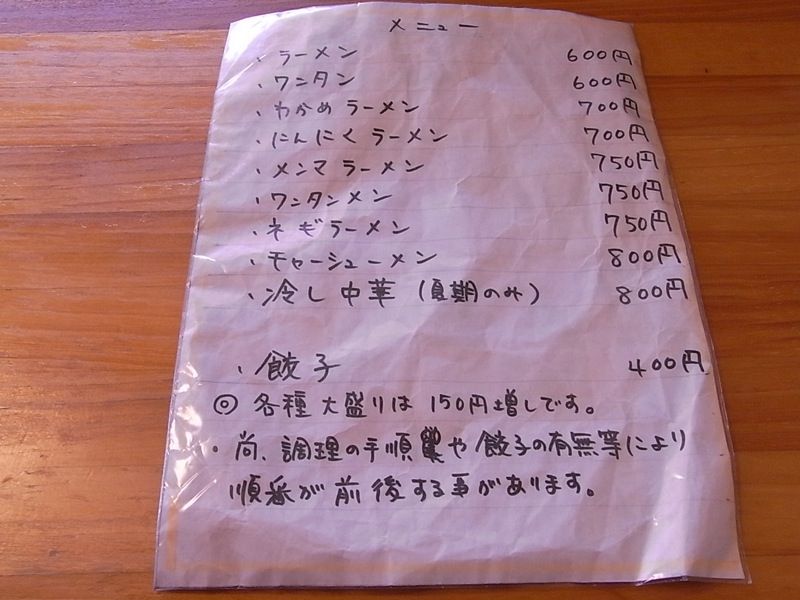 メニュー
・ラーメン 600円
・ワンタン 600円
・わかめラーメン 700円
・にんにくラーメン 700円
・メンマラーメン 750円
・ワンタンメン 750円
・ネギラーメン 750円
・チャーシューメン 800円
・冷し中華(夏期のみ) 800円
・餃子 400円
◎各種大盛りは150円増しです。
・尚、調理の手順や餃子の有無等により
順番が前後する事があります。